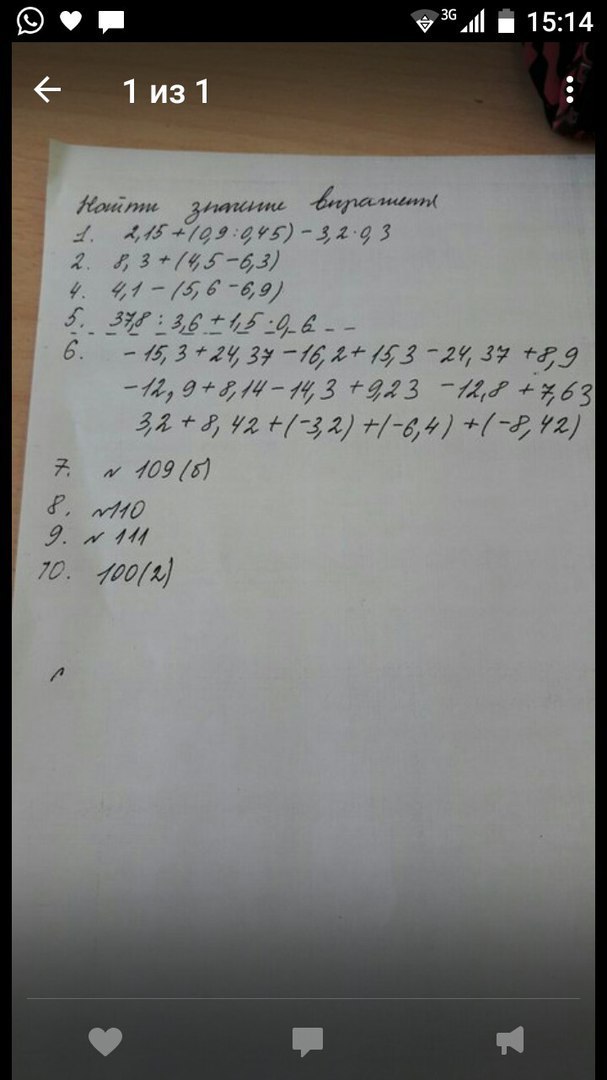 3G 15:14
1 из 1
Найти значение выражения
1. 2,15 + (0,9 : 0,45) - 3,2 · 0,3
2. 8,3 + (4,5 - 6,3)
4. 4,1 - (5,6 - 6,9)
5. 37,8 : 3,6 + 1,5 : 0,6
6. - 15,3 + 24,37 - 16,2 + 15,3 - 24,37 + 8,9
- 12,9 + 8,14 - 14,3 + 9,23 - 12,8 + 7,63
3,2 + 8,42 + (-3,2) + (-6,4) + (-8,42)
7. № 109 (б)
8. №110
9. № 111
10. 100(2)